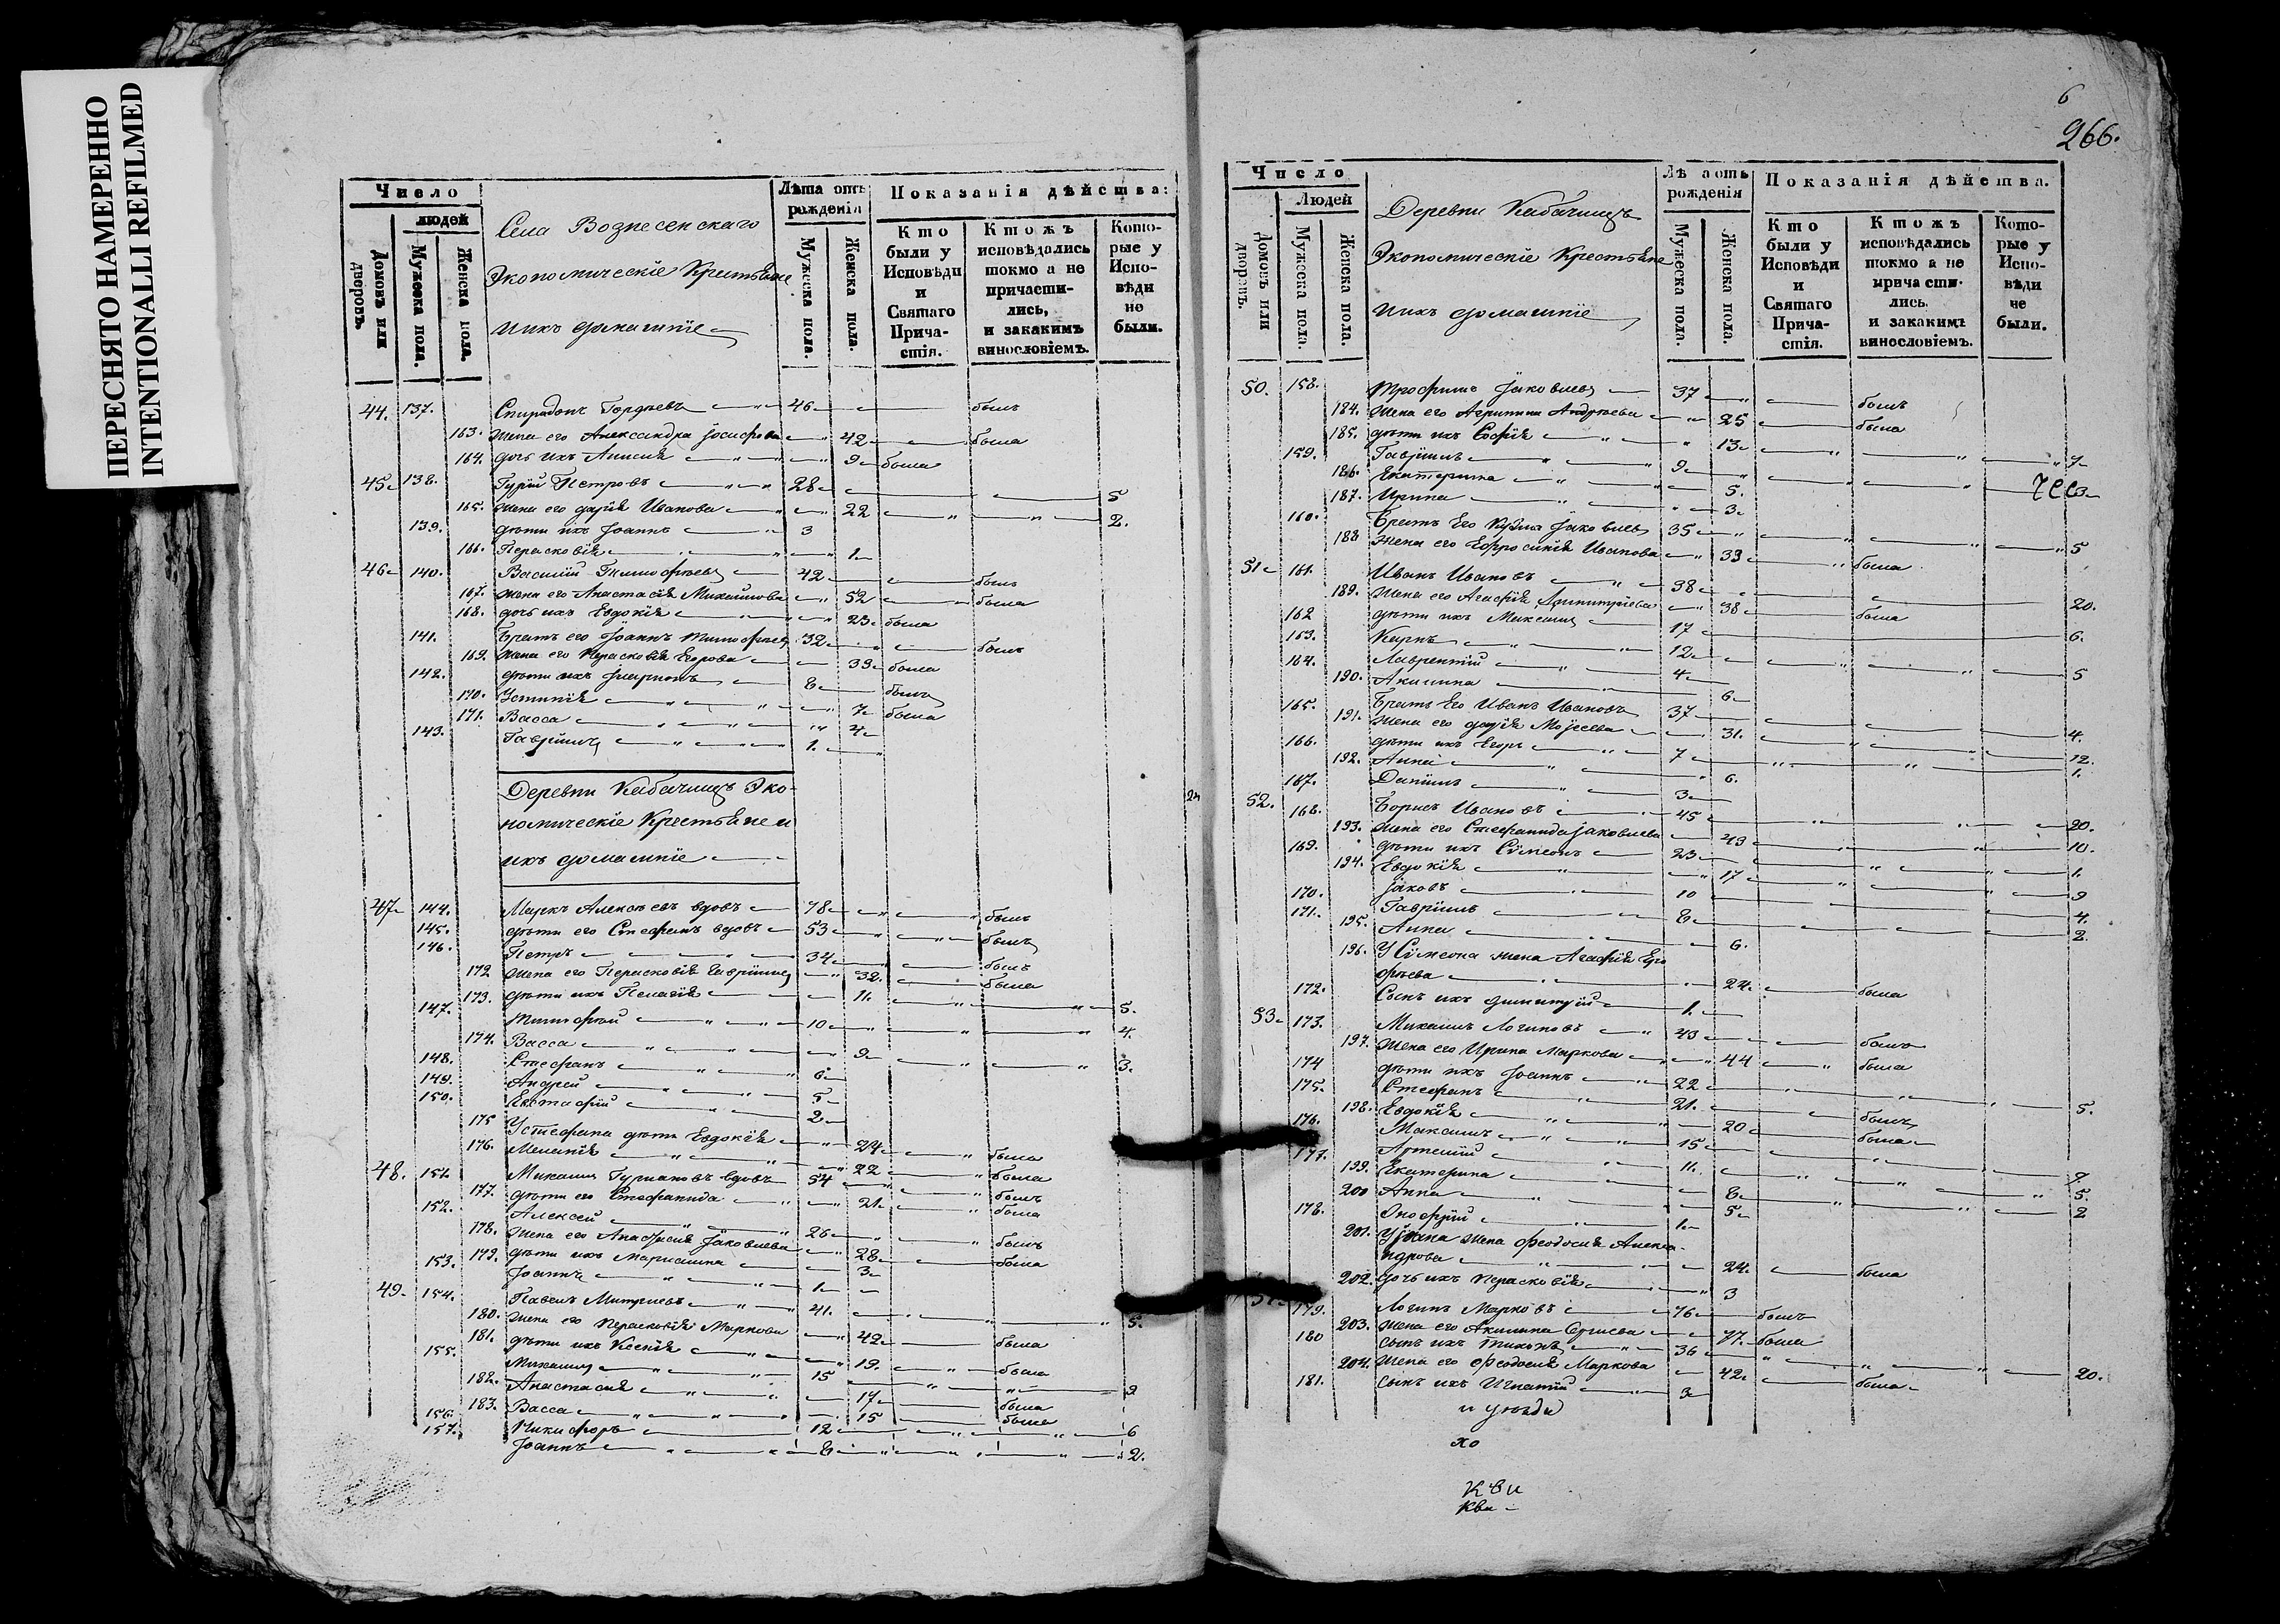 ПЕРЕСНЯТО НАМЕРЕННО
INTENTIONALLI REFILMED
Число
людей
Домовъ или дворовъ.
Мужеска пола.
Женска пола.
Села Вознесенскаго
Экономическіе Крестьяне
и ихъ домашніе
Лѣта отъ рожденія
Мужеска пола.
Женска пола.
Показанія дѣйства:
Кто были у Исповѣди и Святаго Причастія.
Ктожъ исповѣдались токмо а не причастились, и закакимъ винословіемъ.
Которые у Исповѣди не были.
44. 137. Спиридонъ Гордѣевъ 46 былъ
163. жена его Александра Іосифова 42 была
164. дочь ихъ Анисія 9 была
45 138. Гурій Петровъ 28 5
165. жена его дарія Иванова 22 2.
139. дѣти ихъ Іоаннъ 3
166. Парасковія 1
46 140. Василій Тимофѣевъ 42 былъ
167. жена его Анастасія Михайлова 52 была
168. дочь ихъ Евдокія 23 была
141. Братъ его Іоаннъ Тимофѣевъ 32 былъ
169. жена его Парасковія Егорова 33 была
142. дѣти ихъ 8 былъ
170. Устинія 7 была
171. Васса 4
143. Гавріилъ 1.
Деревни Кабачищъ Эко-
номическіе Крестьяне и
ихъ домашніе
47 144. Маркъ Алексѣевъ вдовъ 78 былъ
145. дѣти его Стефанъ вдовъ 53 былъ
146. Петръ 34 былъ
172 жена его Парасковія Гавріилова 32. была
173. дѣти ихъ Пелагія 11. 5.
147. Тимофей 10 4.
174. Васса 9 3.
148. Стефанъ 6
149. Андрей 5
150. Евстафій 2
175 У Стефана дѣти Евдокія 24 была
176. Меланія 22 была
48. 151. Михаилъ Гурьановъ вдовъ 54 былъ
177. дѣти его Стефанида 21. была
152. Алексей 26 былъ
178. жена его Анастасія Іаковлева 28 была
179. дѣти ихъ Маріамна 3
153. Іоаннъ 1
49. 154. Павелъ Митріевъ 41. 5.
180. жена его Парасковія Маркова 42 была
181. дѣти ихъ Ксенія 19. была
155. Михаилъ 15 9
182. Анастасія 17 была
183. Васса 15 была
156. Никифоръ 12 6
157. Іоаннъ 8 2.
6
266.
Число
Людей
Домовъ или дворовъ.
Мужеска пола.
Женска пола.
Деревни Кабачищъ
Экономическіе Крестьяне
и ихъ домашніе
Лѣ а отъ рожденія
Мужеска пола.
Женска пола.
Показанія дѣйства.
Кто были у Исповѣди и Святаго Причастія.
Ктожъ исповѣдались токмо а не прича сти-лись. и закакимъ винословіемъ.
Которые у Исповѣди не были.
50. 158. Трофимъ Іаковлевъ 37 былъ
184. жена его Агрипина Андрѣева 25 была
185. дѣти ихъ Софія 13 7
159. Гавріилъ 9
186. Екатерина 5.
187. Ирина 3
160. Братъ Его Кузма Іаковлевъ 35 5
188 жена его Ефросинія Иванова 33 была
51 161. Иванъ Ивановъ 38 20.
189. жена его Агафія Димитріева 38 была
162 дѣти ихъ Максимъ 17 6.
163. Карпъ 12 5
164. Лаврентій 4
190. Акилина 6
165. Братъ Его Иванъ Ивановъ 37 4.
191. жена его дарія Моѵсеева 31. 12.
166. дѣти ихъ Егоръ 7 1.
192. Анна 6.
167. Даніилъ 3
52. 168. Борисъ Ивановъ 45 20.
193. жена его Стефанида Іаковлева 49 10.
169. дѣти ихъ Сѵмеонъ 23 1.
194. Евдокія 17 9
170. Іаковъ 10 4.
171. Гавріилъ 8 2.
195. Анна 6.
196. У Сѵмеона жена Агафія Его
рьева 24. была
172. Сынъ ихъ димитрій 1.
53 173. Михаилъ Логиновъ 43 былъ
197. жена его Ирина Маркова 44 была
174 дѣти ихъ Іоаннъ 22 5.
175. Стефанъ 21. былъ
198. Евдокія 20 была
176. Максимъ 15 7
177. Артемій 11. 5.
199. Екатерина 8 2
200 Анна 5
178. Онофрій 1
201. У Іоана жена Феодосія Алекса-
ндрова 24. была
202. дочь ихъ Парасковія 3
179. Логинъ Марковъ 76 былъ
203. жена его Акилина Сергиева 77. была
180 сынъ ихъ Тихонъ 36 20.
204. жена его Феодосія Маркова 42 была
181. сынъ ихъ Игнатій 3
хо
кви
кви